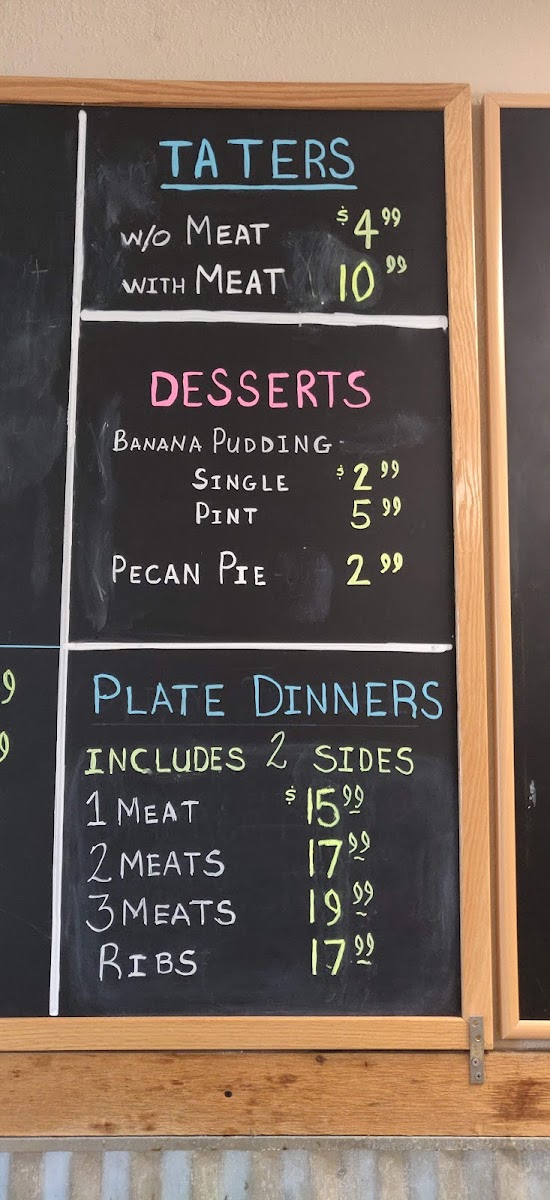 TATERS
W/O MEAT $4.99
WITH MEAT 10.99
DESSERTS
BANANA PUDDING
SINGLE $2.99
PINT 5.99
PECAN PIE 2.99
PLATE DINNERS
INCLUDES 2 SIDES
1 MEAT $15.99
2 MEATS 17.99
3 MEATS 19.99
RIBS 17.99
9
9